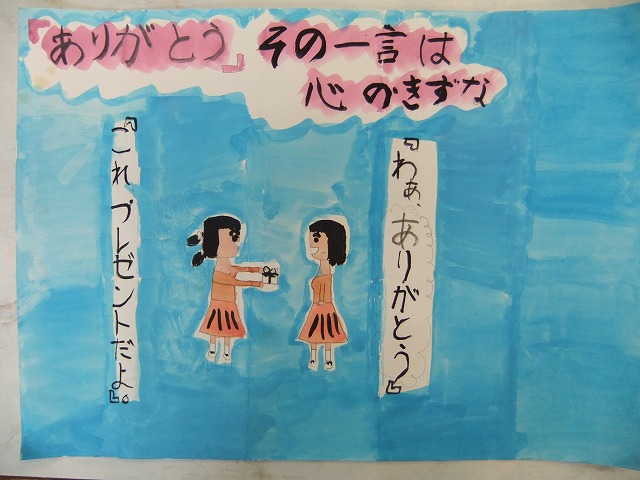 『ありがとう』その一言は
心のきずな
『わぁ、ありがとう』
『これ、プレゼントだよ。』